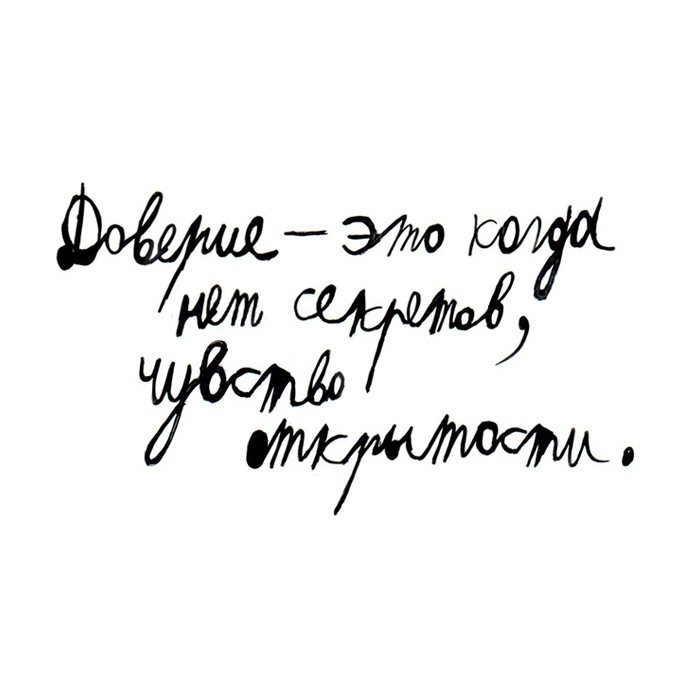 Доверие – это когда
нет секретов,
чувство
открытости.